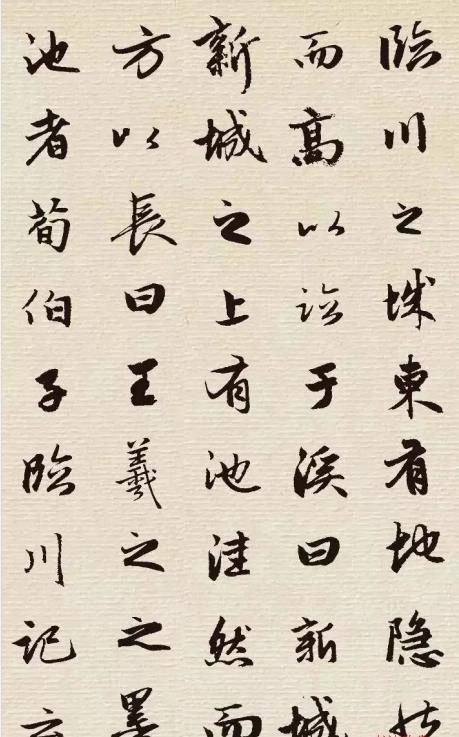 臨川之城東有地隱
而高以臨于溪曰新城
新城之上有池洼然而
方以長曰王羲之之墨
池者荀伯子臨川記云